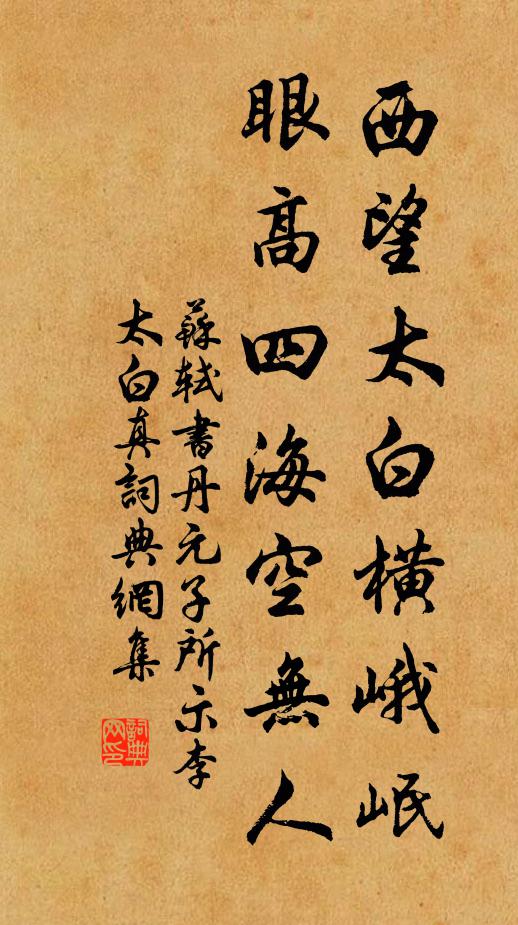 西望太白橫峨岷
眼高四海空無人
蘇軾書丹元子所示李
太白真詞典網集
詞典網印